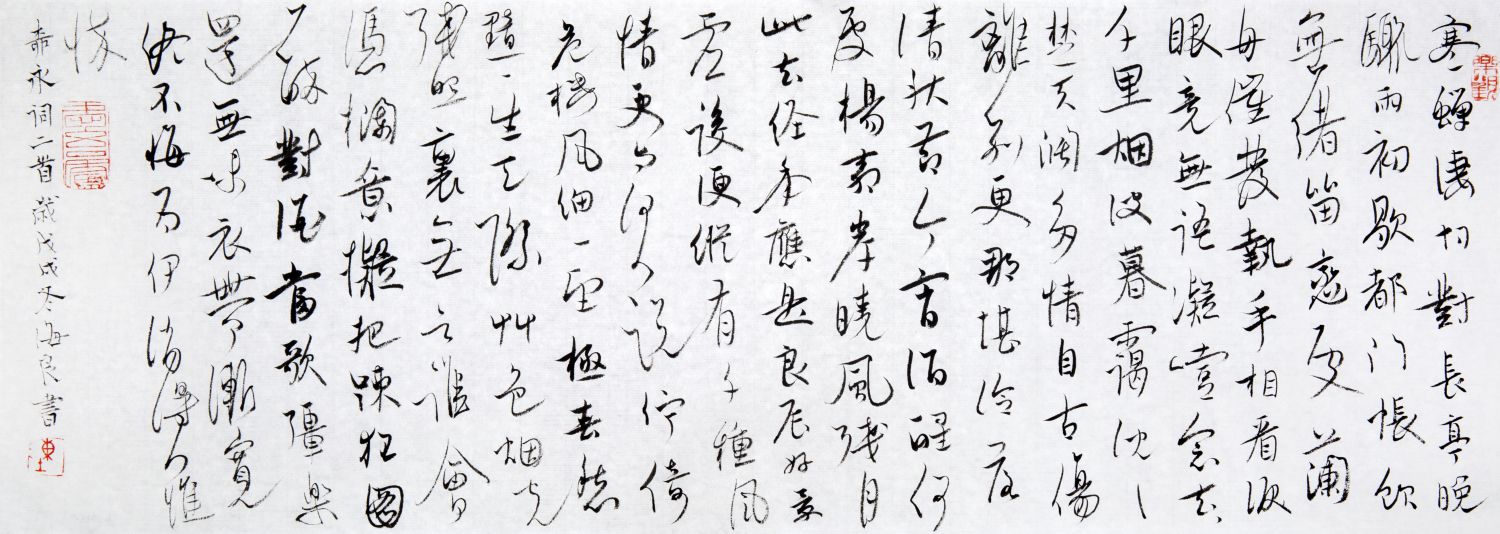 寒蟬淒切對長亭晚
驟雨初歇都門帳飲
無緒留戀處蘭
舟催發執手相看淚
眼竟無語凝噎念去
千里烟波暮靄沈〻
楚天闊多情自古傷
離別更那堪冷落
清秋節今宵酒醒何
處楊柳岸曉風殘月
此去經年應是良辰好景
虛設便縱有千種風
情更與何人說佇倚
危樓風細〻望極春愁
黯〻生天際艸色烟光
殘照裏無言誰會
憑欄意擬把疎狂圖
一醉對酒當歌彊樂
還無味衣帶漸寬
終不悔為伊消得人憔
悴
柳永詞二首歲戊戌冬海良書